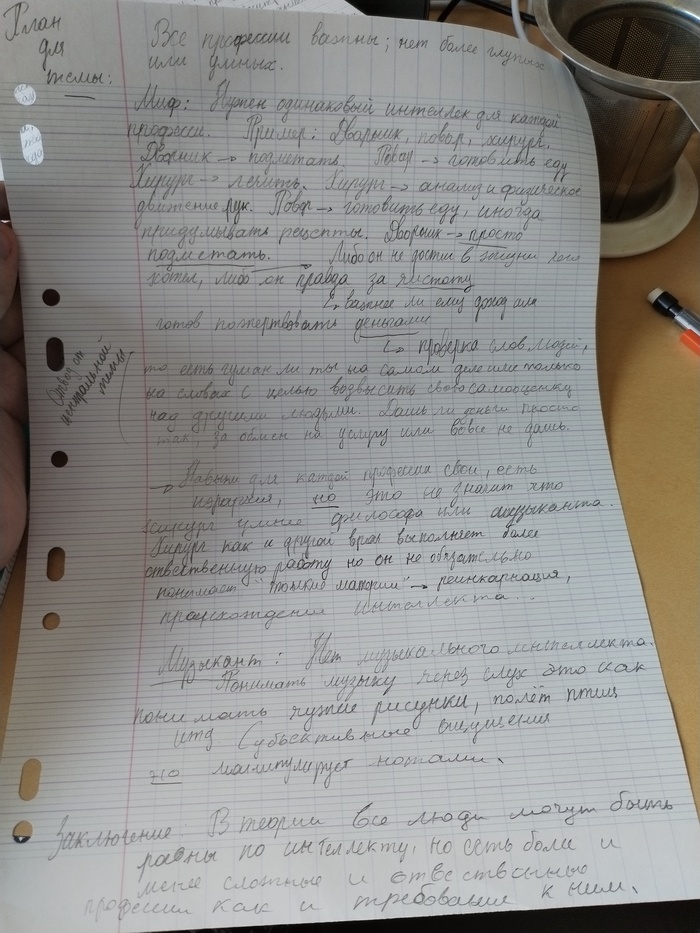 План
для
темы:
Все професии важны; нет более глупых
или умных.
Миф: Нужен одинаковый интеллек для каждой
професси. Пример: Дворник, повар, хирург.
Дворник → подметать. Повар → готовить еду
Хирург → лечить. Хирург → анализ и физическое
движение рук. Повар → готовить еду, иногда
придумывать рецепты. Дворник → просто
подметать. Либо он не достиг в жизни чего
хотел, либо он правда за чистоту
↳ важнее ли ему доход или
готов пожертвовать деньгами
↳ проверка слов людей,
то есть гуман ли ты на самом деле или только
на словах с целью возвысить свою самооценку
над другими людьми. Дашь ли деньги просто
так, за обмен на услугу или вовсе не дашь.
Отвод от
центральной
темы
→ Навыки для каждой професии свои, есть
иерархия, но это не значит что
хирург умнее философа или музыканта.
Хирург как и другой врач выполняет более
отвественную работу но он не обязательно
понимает "тонкие материи" → реинкарнация,
происхождение интеллекта.
Музыкант: Нет музыкального интеллекта.
Понимать музыку через слух это как
понимать чужие рисунки, полёт птиц
итд (субъективные ощущения
но манипулирует нотами.
Заключение: В теории все люди могут быть
равны по интеллекту, но есть боле и
мене сложные и отвественные
професии как и требования к ним.